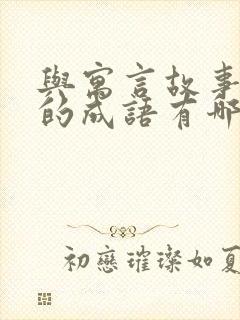 與寓言故事
的成語有哪
初戀璀璨如夏